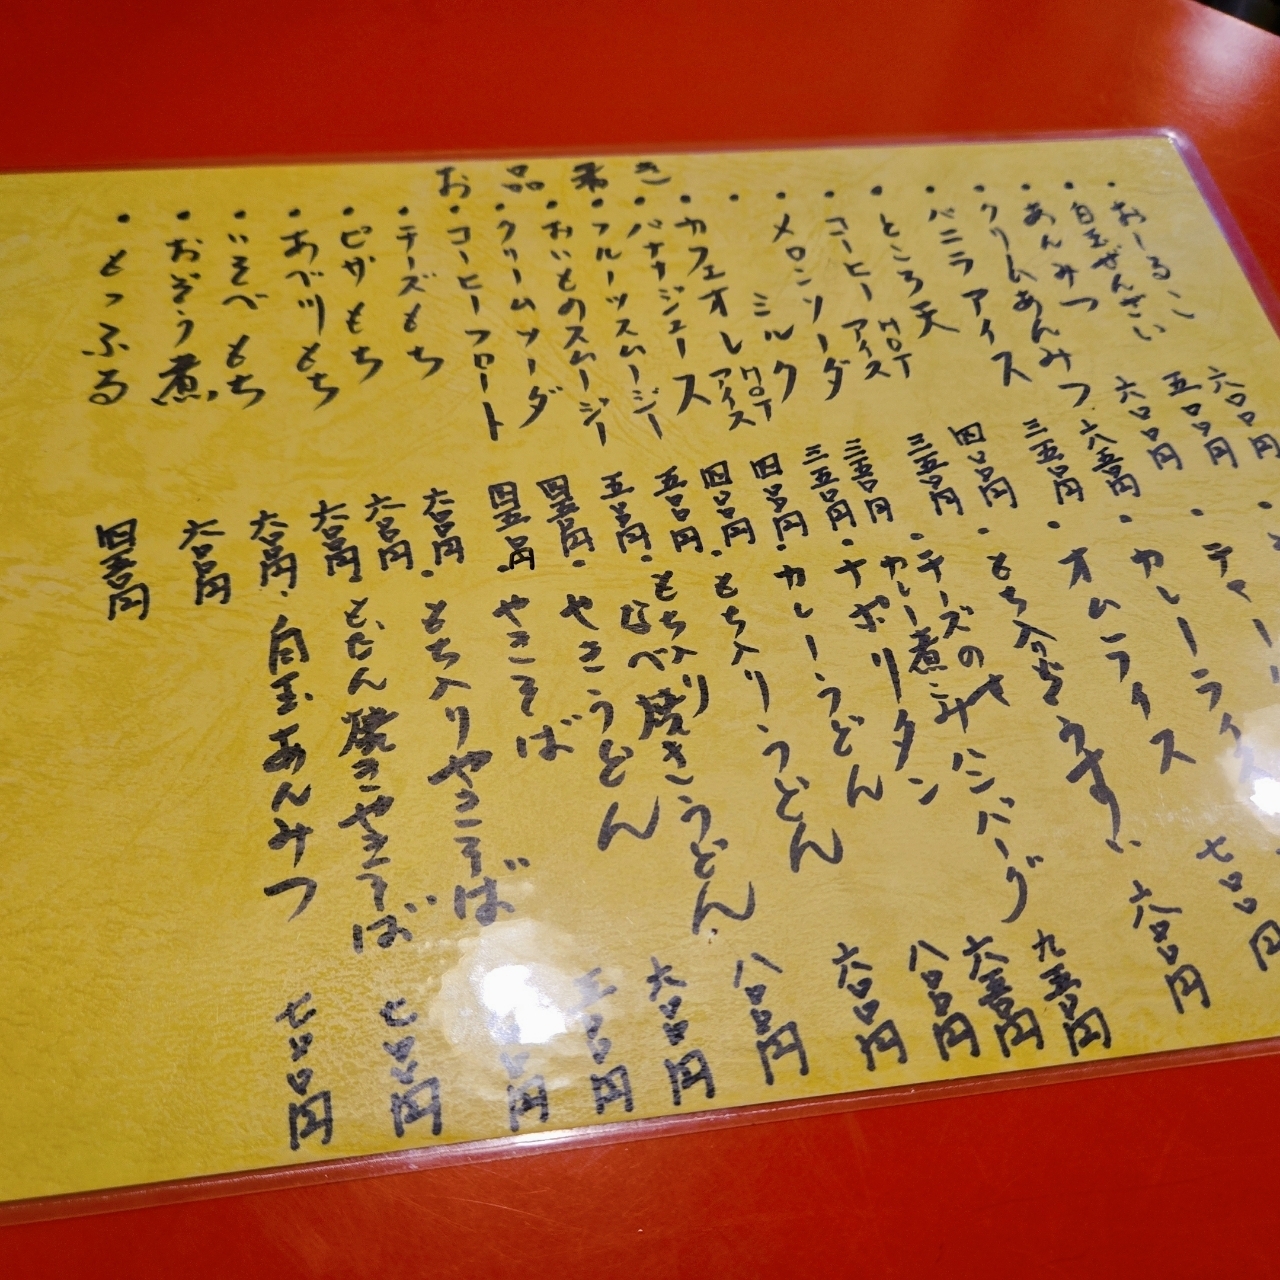 お品書き
・おしるこ 六〇〇円
・白玉ぜんざい 五〇〇円
・あんみつ 六〇〇円
・クリームあんみつ 六五〇円
・バニラアイス 三五〇円
・ところ天 四〇〇円
・コーヒー HOT アイス 三五〇円
・メロンソーダ 三五〇円
・ミルク HOT アイス 三五〇円
・カフェオレ 四〇〇円
・バナナジュース 四〇〇円
・フルーツスムージー 五〇〇円
・おいものスムージー 五〇〇円
・クリームソーダ 四五〇円
・コーヒーフロート 四五〇円
・チーズもち 六〇〇円
・ピザもち 六〇〇円
・あべ川もち 六〇〇円
・いそべもち 六〇〇円
・おぞう煮 六〇〇円
・もっふる 四五〇円
・カレーライス
・オムライス 七〇〇円
・もち入りぞうすい 六〇〇円
・チーズのせハンバーグ
カレー煮 九五〇円
・ナポリタン 六五〇円
・カレーうどん 八〇〇円
・もち入りうどん 六〇〇円
・もち入り
なべ焼きうどん 八〇〇円
・やきうどん 六〇〇円
・やきそば 五〇〇円
・もち入りやきそば 円
どたん焼きやきそば 七〇〇円
・白玉あんみつ 七〇〇円